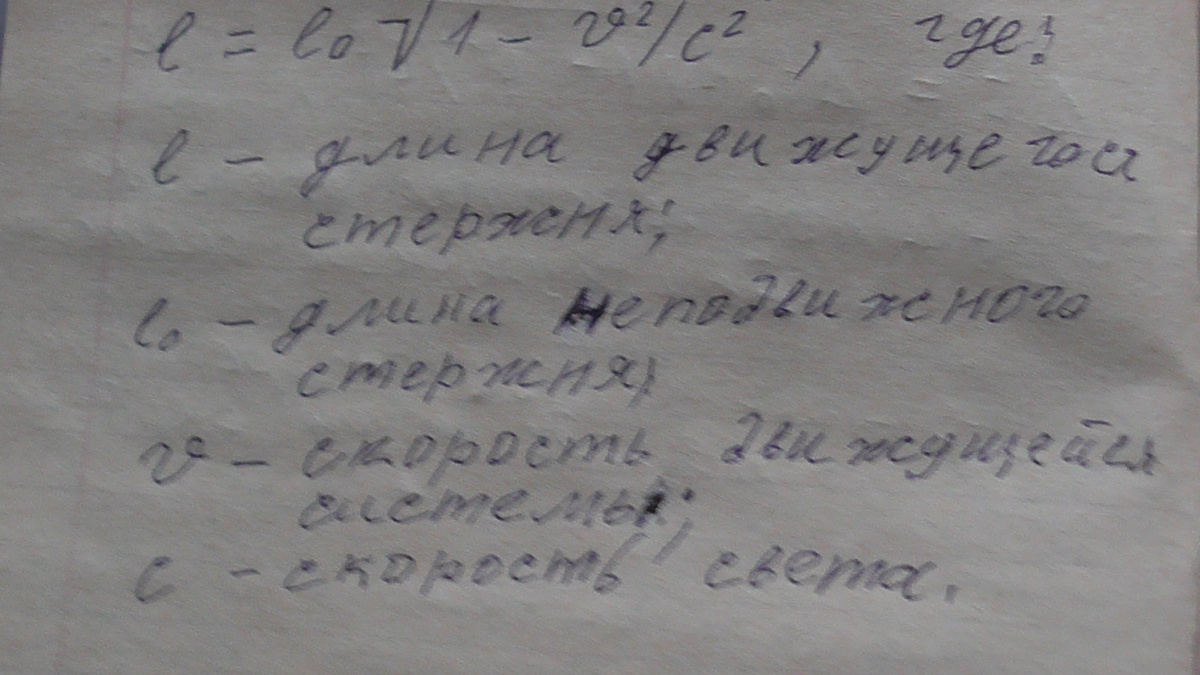 l = l₀ √1 - v²/c² , где:
l - длина движущегося
стержня;
l₀ - длина неподвижного
стержня;
v - скорость движущейся
системы;
c - скорость света.